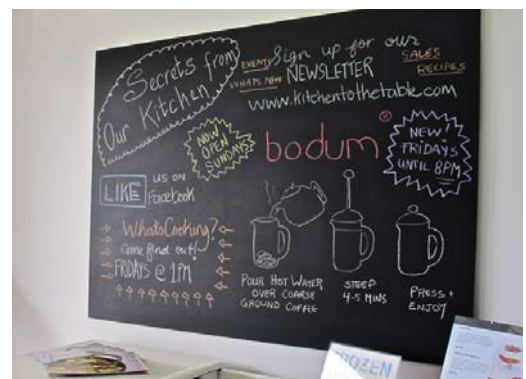 Secrets from
Our Kitchen
EVENTS
WHATS NEW
Sign up for our
NEWSLETTER
SALES
RECIPES
www.kitchentothetable.com
NOW
OPEN
SUNDAYS
bodum®
NEW!
FRIDAYS
UNTIL 8PM
LIKE US ON
Facebook
WhatsCooking?
Come find out!
FRIDAYS @ 1PM
POUR HOT WATER
OVER COARSE
GROUND COFFEE
STEEP
4-5 MINS
PRESS +
ENJOY